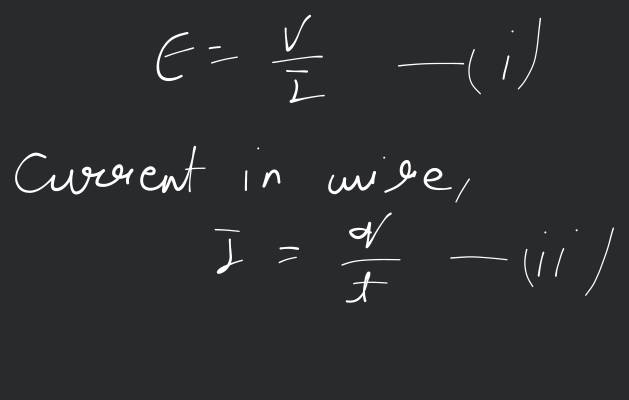 E = V/I —(i)
Current in wire,
I = q/t —(ii)